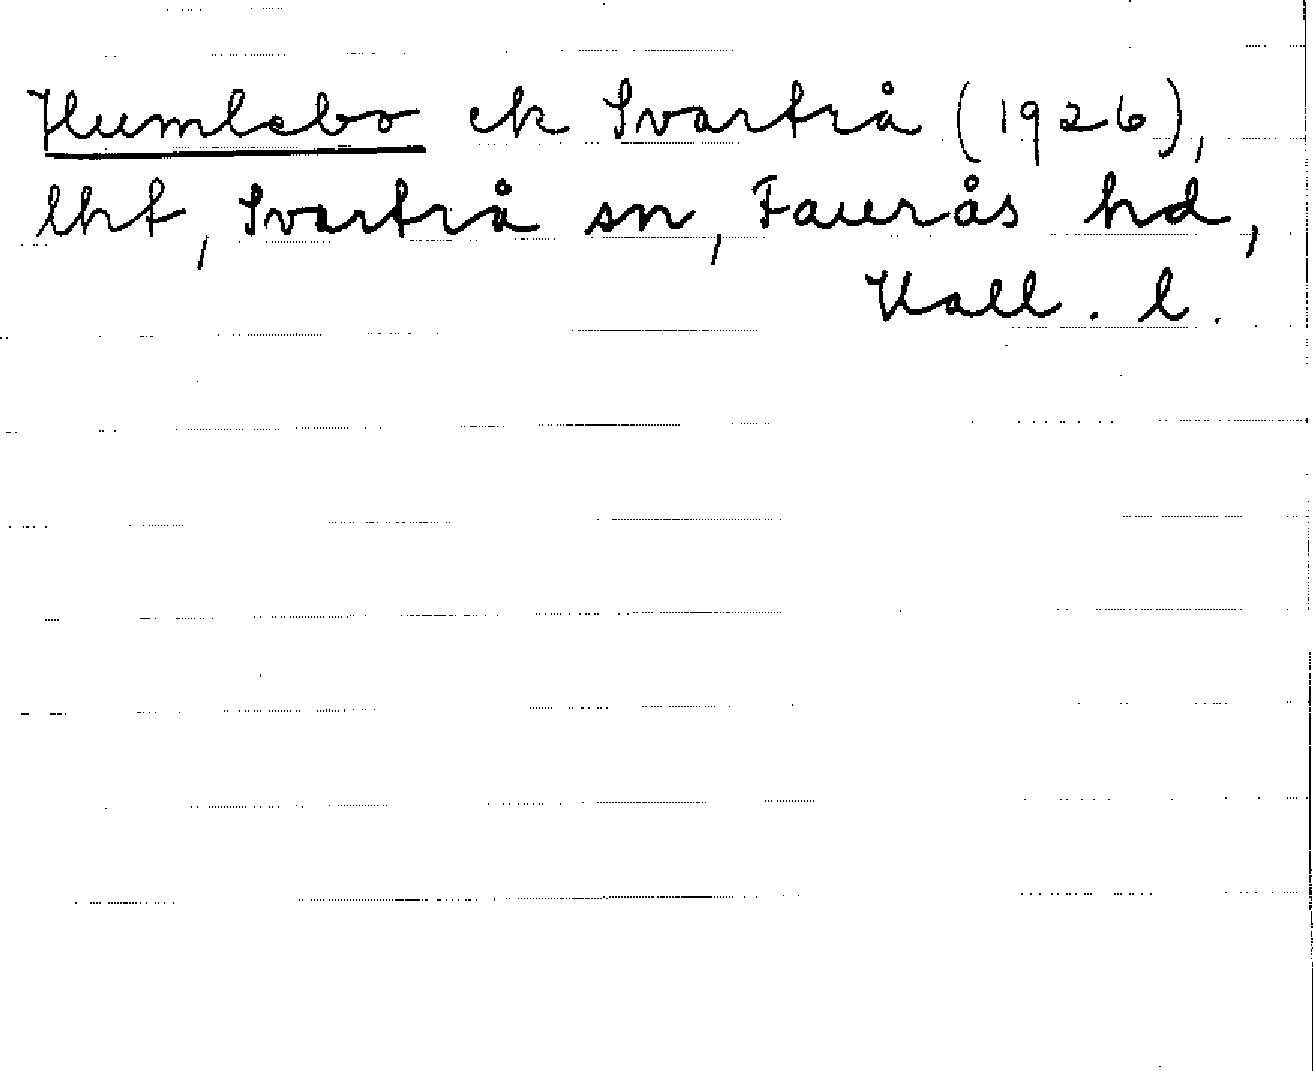 Humlebo ek Svartrå (1926),
lht, Svartrå sn, Faurås hd,
Hall. l.